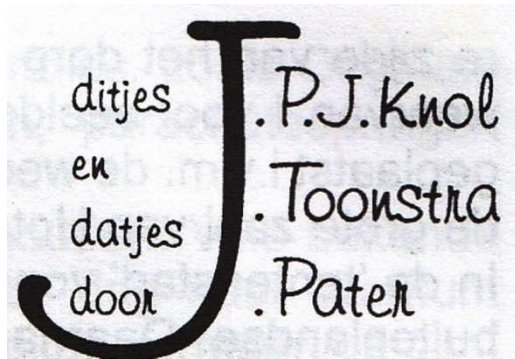 ditjes
en
datjes
door
J
.P.J.Knol
.Toonstra
.Pater